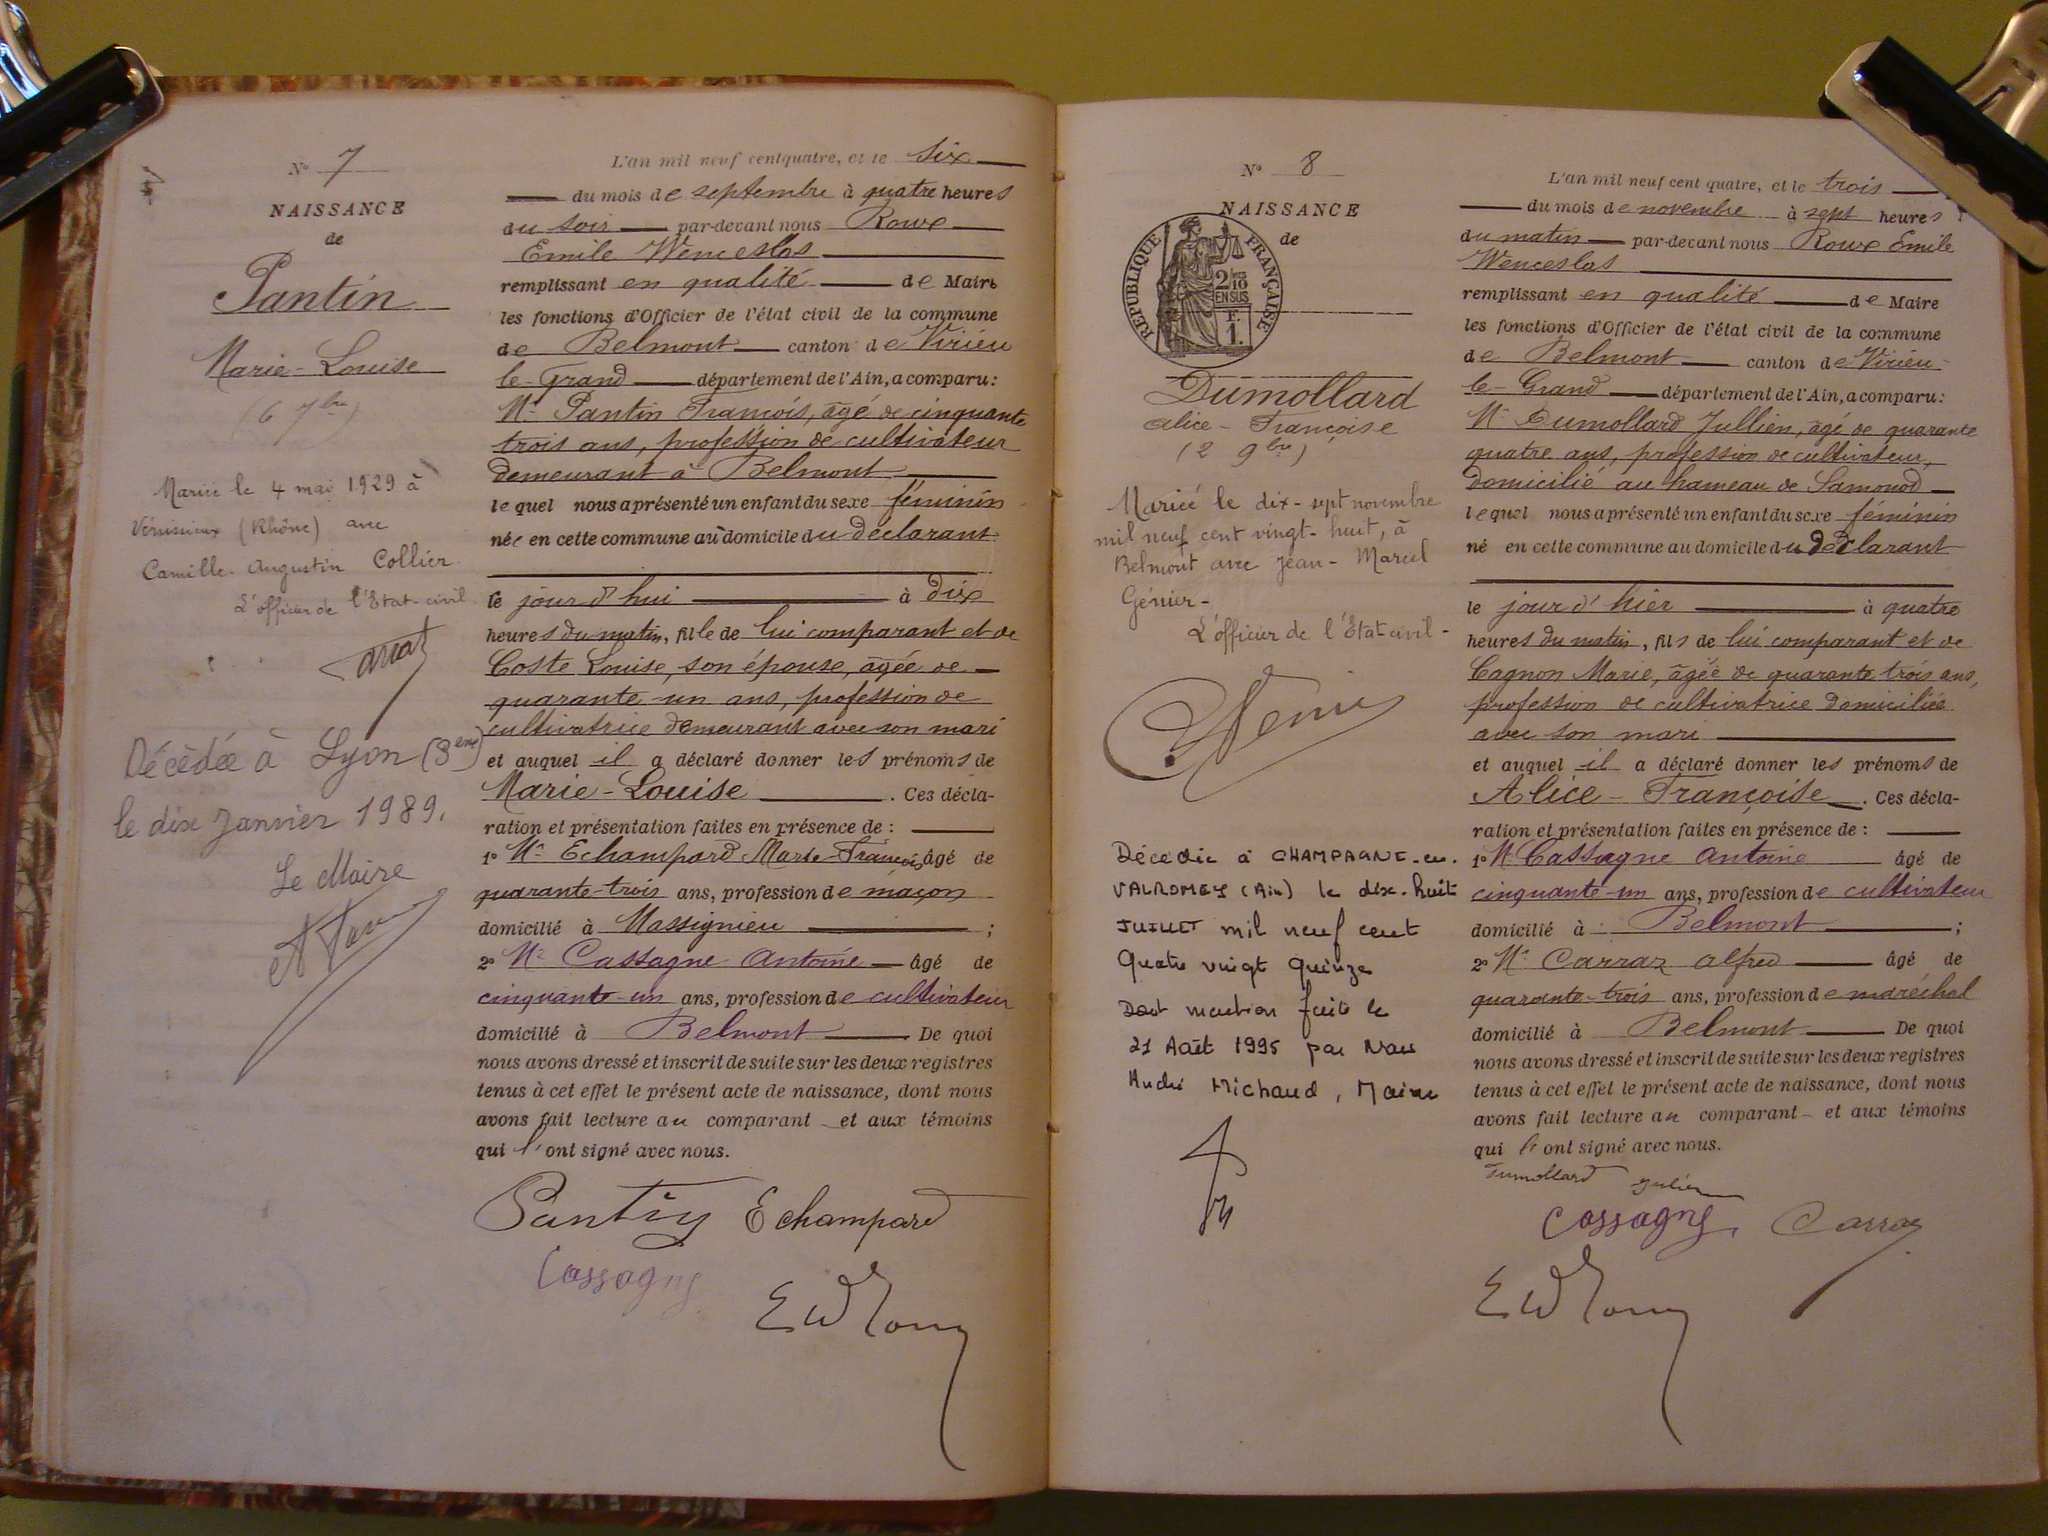 N° 7
NAISSANCE
de
Pantin
Marie-Louise
(6 7bre)
Mariée le 4 mai 1929 à
Vénissieux (Rhône) avec
Camille-Augustin Collier.
L'officier de l'Etat-civil
Décédée à Lyon (3ème)
le dix Janvier 1989.
Le Maire
L'an mil neuf cent quatre, et le six
du mois de septembre à quatre heures
du soir par-devant nous Roux
Emile Wenceslas
remplissant en qualité de Maire
les fonctions d'Officier de l'état civil de la commune
de Belmont canton de Virieu
le-Grand département de l'Ain, a comparu:
Mr Pantin François, âgé de cinquante
trois ans, profession de cultivateur
demeurant à Belmont
lequel nous a présenté un enfant du sexe féminin
née en cette commune au domicile du déclarant
le jour d'hui à dix
heures du matin, fille de lui comparant et de
Coste Louise, son épouse, âgée de
quarante-un ans, profession de
cultivatrice demeurant avec son mari
et auquel il a déclaré donner les prénoms de
Marie-Louise. Ces décla-
ration et présentation faites en présence de :
1° Mr Echampard Marie-François âgé de
quarante-trois ans, profession de maçon
domicilié à Massignieu ;
2° Mr Cassagne Antoine âgé de
cinquante-un ans, profession de cultivateur
domicilié à Belmont De quoi
nous avons dressé et inscrit de suite sur les deux registres
tenus à cet effet le présent acte de naissance, dont nous
avons fait lecture au comparant et aux témoins
qui l'ont signé avec nous.
Pantin Echampard
Cassagne
N° 8
NAISSANCE
de
RÉPUBLIQUE FRANÇAISE
2/10
EN SUS
F.
1.
Dumollard
Alice-Françoise
(2 9bre)
Mariée le dix-sept novembre
mil neuf cent vingt-huit, à
Belmont avec Jean-Marcel
Génier-
L'officier de l'Etat civil-
Décédée à CHAMPAGNE-en-
VALROMEY (Ain) le dix-huit
JUILLET mil neuf cent
Quatre vingt Quinze
Dont mention faite le
21 Août 1995 par Nous
André Michaud, Maire
L'an mil neuf cent quatre, et le trois
du mois de novembre à sept heures
du matin par-devant nous Roux Emile
Wenceslas
remplissant en qualité de Maire
les fonctions d'Officier de l'état civil de la commune
de Belmont canton de Virieu-
le-Grand département de l'Ain, a comparu:
Mr Dumollard Jullien, âgé de quarante
quatre ans, profession de cultivateur,
domicilié au hameau de Samonod
lequel nous a présenté un enfant du sexe féminin
né en cette commune au domicile du déclarant
le jour d'hier à quatre
heures du matin, fils de lui comparant et de
Cagnon Marie, âgée de quarante trois ans,
profession de cultivatrice domiciliée
avec son mari
et auquel il a déclaré donner les prénoms de
Alice-Françoise. Ces décla-
ration et présentation faites en présence de :
1° Mr Cassagne Antoine âgé de
cinquante-un ans, profession de cultivateur
domicilié à Belmont ;
2° Mr Carraz Alfred âgé de
quarante-trois ans, profession de maréchal
domicilié à Belmont De quoi
nous avons dressé et inscrit de suite sur les deux registres
tenus à cet effet le présent acte de naissance, dont nous
avons fait lecture au comparant et aux témoins
qui l'ont signé avec nous.
Dumollard Julien
Cassagne Carraz